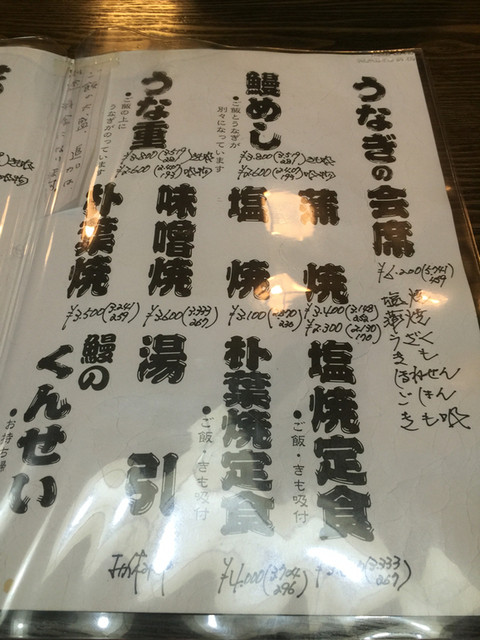 うなぎの会席
¥6.200(5.741
459)
塩焼
蒲焼
うざく
きも
ほねせん
ごはん
きも吸
鰻めし
●ご飯とうなぎが
別々になっています
¥3.800(3.519
281)
¥2.600(2.407
193)
うな重
●ご飯の上に
うなぎがのっています
¥3.800(3.519
281)
¥2.600(2.407
193)
蒲焼
¥3.400(3.148
252)
¥2.300(2.130
170)
塩焼
¥3.100(2.870
230)
味噌焼
¥3.600(3.333
267)
朴葉焼
¥3.500(3.241
259)
塩焼定食
●ご飯・きも吸付
(3.333
267)
朴葉焼定食
●ご飯・きも吸付
¥4.000(3.704
296)
湯引
鰻の
くんせい
●お持ち帰